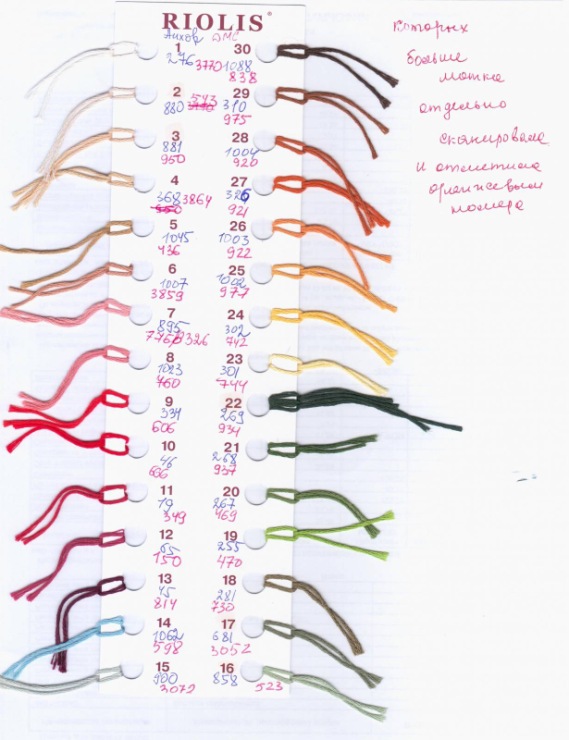 RIOLIS®
Анхор ДМС
1 30
276 3770 1088
838
2 29
880 543 310
975
3 28
881 1004
950 920
4 27
368 3864 326
921
5 26
1045 1003
436 922
6 25
1007 1002
3859 977
7 24
895 302
3326 742
8 23
1023 301
760 744
9 22
334 269
606 934
10 21
46 268
666 937
11 20
19 267
349 469
12 19
65 255
150 470
13 18
45 281
814 730
14 17
1062 681
598 3052
15 16
900 858
3072 523
которых
больше
мотка
отдельно
сканировала
и отметила
оранжевым
номера